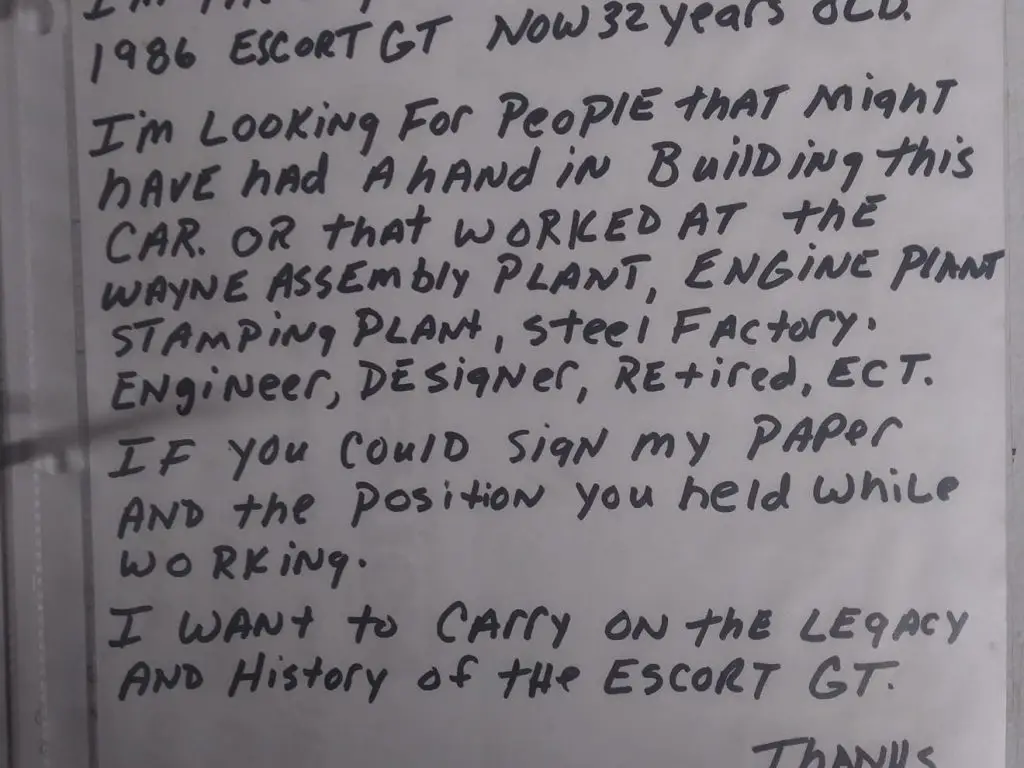 I'm
1986 ESCORT GT NOW 32 years OLD.
I'm LOOKiNg For PeoPlE thAT Might
hAVE had A hANd iN BuilDing this
CAR. OR that WORKED AT thE
WAYNE ASSEmbly PLANT, ENGiNE PlANT
STAMPiNg PLANt, steel FActory.
ENgiNeer, DEsigNer, REtired, ECT.
IF you COulD sigN my PAPer
AND the PositioN you held while
WORKiNg.
I WANt to CArry ON the LEgACy
AND History of the ESCORT GT.
THANKS